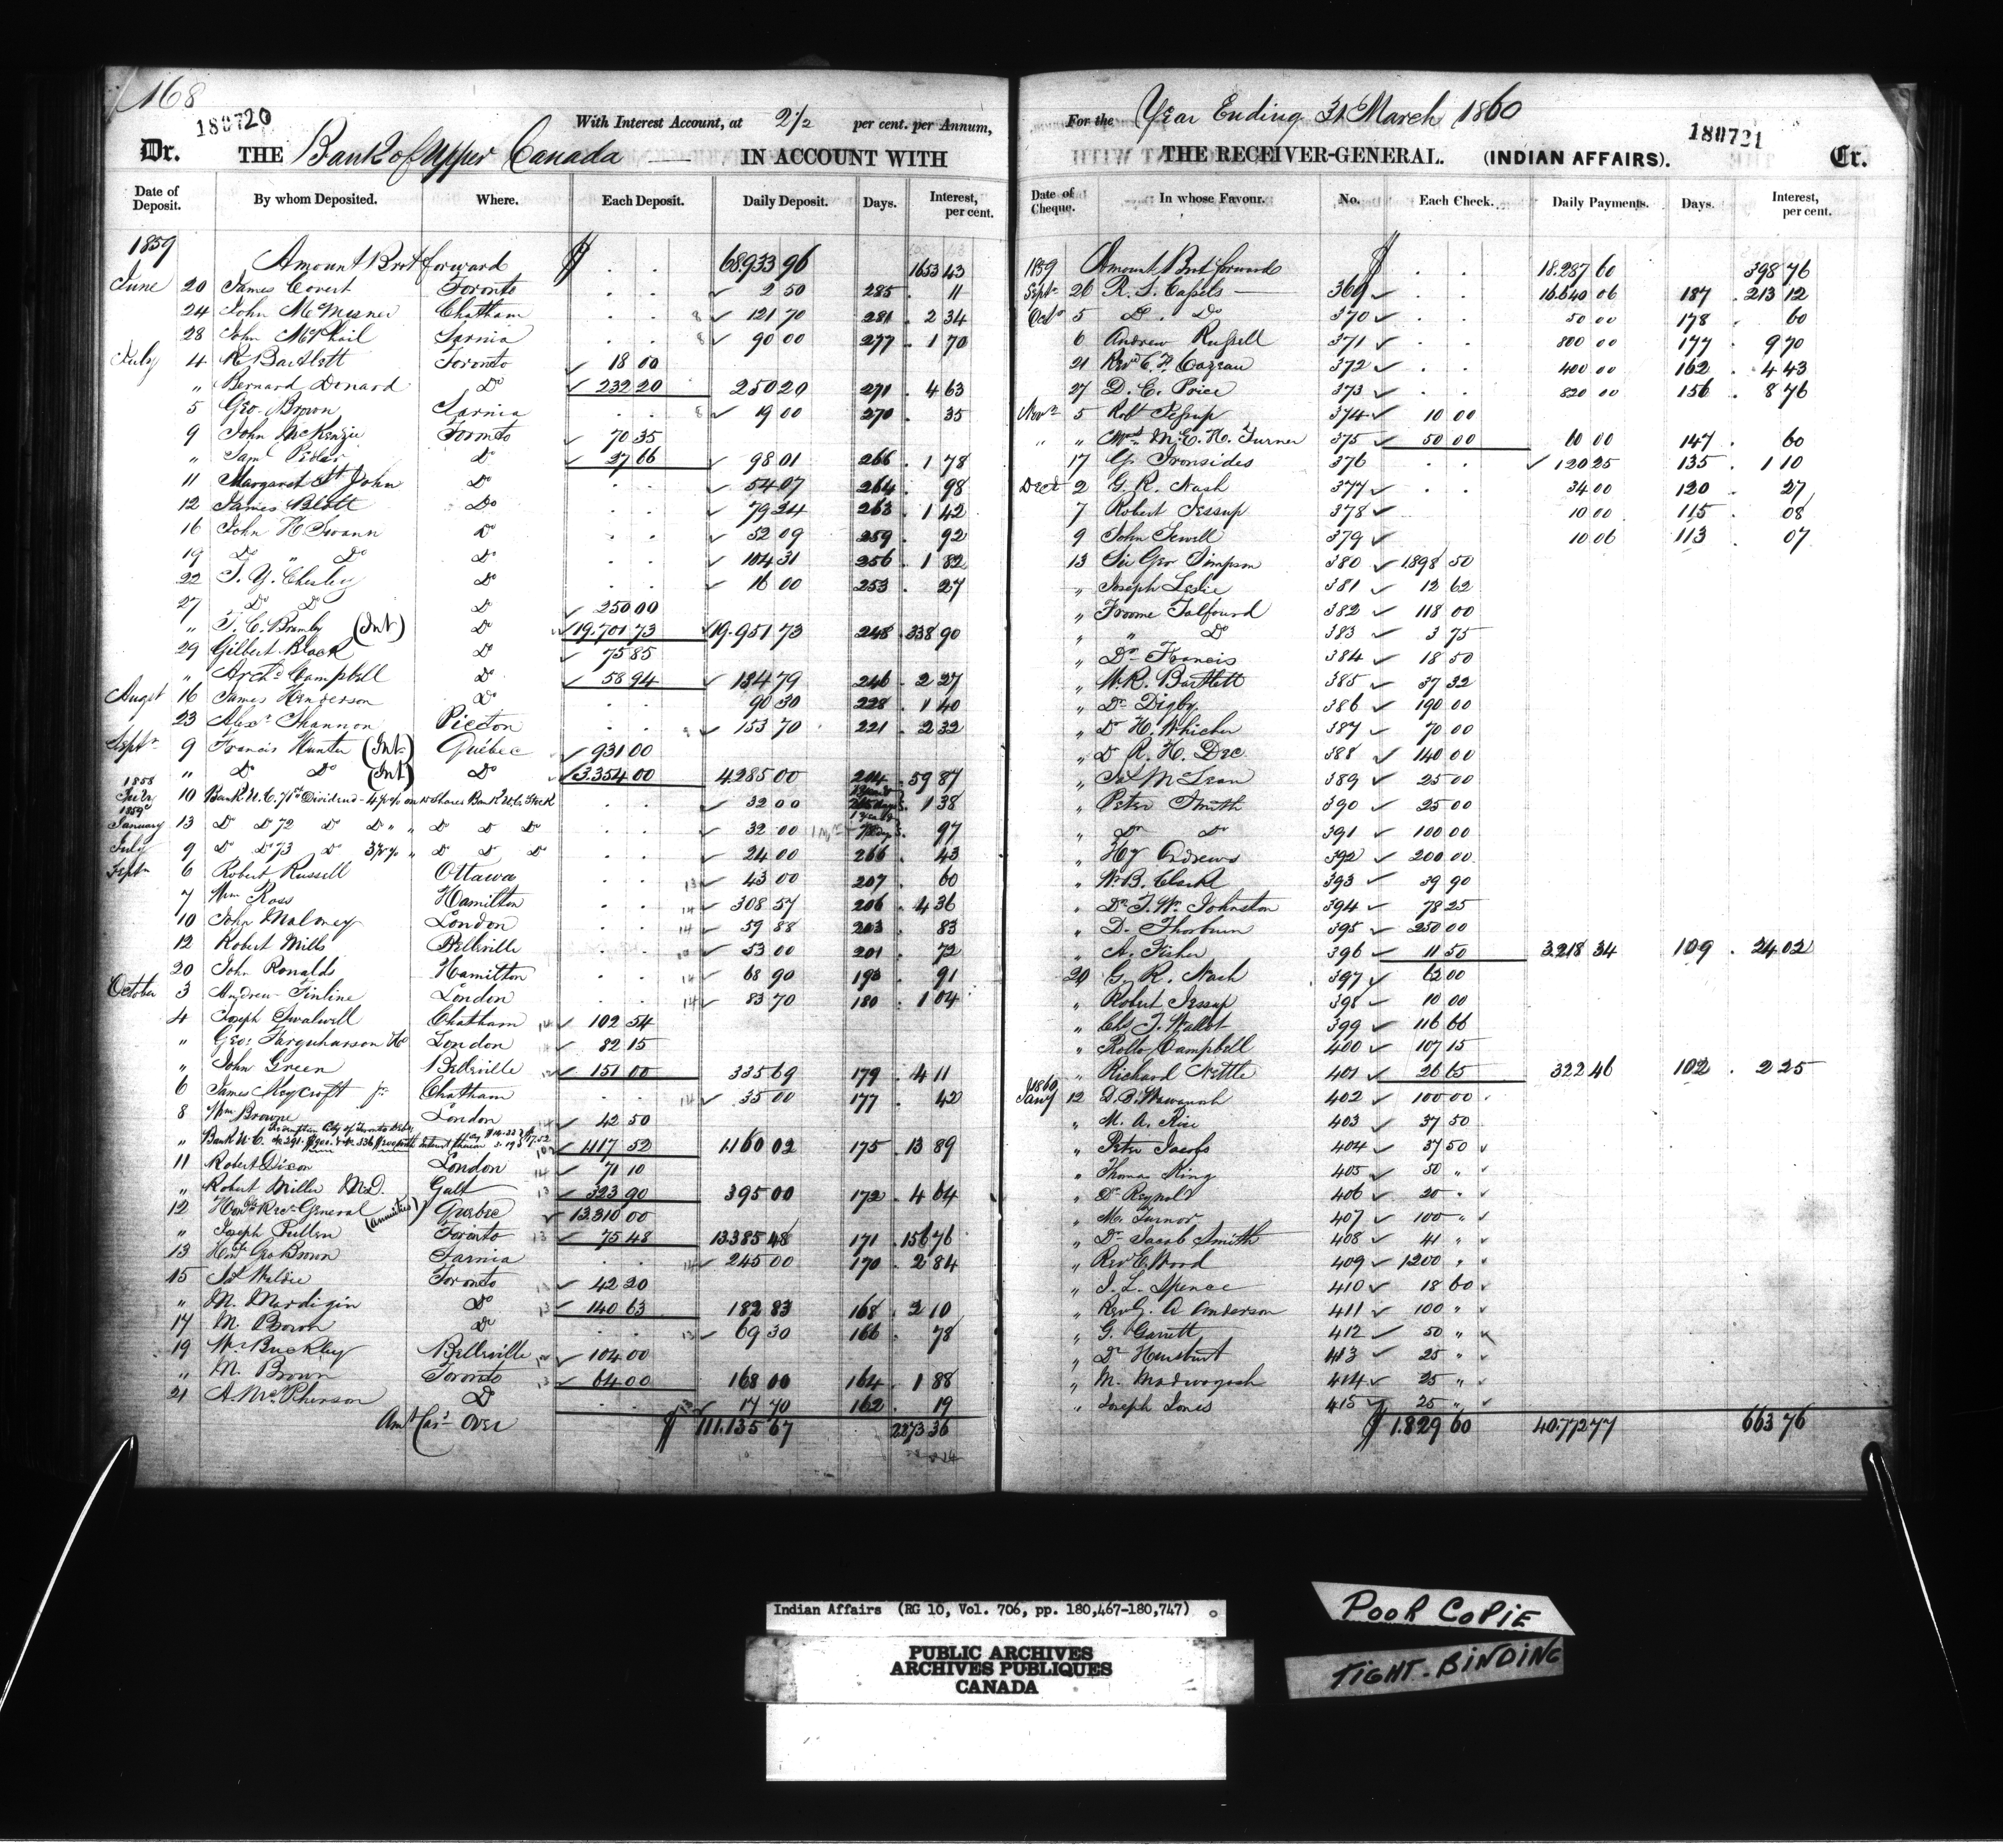 168
180720
With Interest Account, at 2 1/2 per cent. per Annum,
Dr. THE Bank of Upper Canada IN ACCOUNT WITH
Date of Deposit. By whom Deposited. Where. Each Deposit. Daily Deposit. Days. Interest, per cent.
1859 Amount Brot forward $ . . 68.933 96 1653 43
June 20 James Covert Toronto . . 2 50 285 . 11
24 John McMesner Chatham . . 121 70 281 . 2 34
28 John McPhail Sarnia . . 90 00 277 . 1 70
July 4 R Bartlett Toronto 18 00
" Bernard Donard Do 232 20 250 20 271 . 4 63
5 Geo. Brown Sarnia . . 19 00 270 . 35
9 John McKenzie Toronto 70 35
" Saml Do 27 66 98 01 266 . 1 78
11 Margaret St John Do . . 54 07 264 . 98
12 James Do . . 79 24 263 . 1 42
16 John H Swann Do . . 52 09 259 . 92
19 Do " Do Do . . 104 31 256 . 1 82
22 S. Y. Chesley Do . . 16 00 253 . 27
27 Do Do Do 250 00
" T. C. Bramley (Int) Do 19.701 73 19.951 73 248 . 338 90
29 Gilbert Black Do 75 85
" Archd Campbell Do 58 94 134 79 246 . 2 27
Augst 16 James Henderson Do . . 90 30 228 . 1 40
23 Alexr Shannon Picton . . 153 70 221 . 2 32
Septr 9 Francis Hunter (Int) Québec 931 00
" Do Do (Int) Do 3.354 00 4.285 00 204 . 59 87
1858 July 10 Bank U.C. 71st Dividend - 4 p% on Shares Bank U.C. Stock . . 32 00 1 38
1859 January 13 Do Do 72 Do Do " " Do Do Do . . 32 00 97
July 9 Do Do 73 Do 3 p% " Do Do Do . . 24 00 266 . 43
Septr 6 Robert Russell Ottawa . . 43 00 207 . 60
7 Wm Ross Hamilton . . 308 57 206 . 4 36
10 John Maloney London . . 59 88 203 . 83
12 Robert Mills Belleville . . 53 00 201 . 72
20 John Ronalds Hamilton . . 68 90 193 . 91
October 3 Andrew Finline London . . 83 70 180 . 1 04
4 Joseph Swalwell Chatham 102 54
" Geo: Farquharson London 82 15
" John Green Belleville 151 00 335 69 179 . 4 11
6 James Moycroft Jr Chatham . . 35 00 177 . 42
8 Wm Browne London 42 50
" Bank U.C. Redemption City of Toronto 1117 52 1160 02 175 . 13 89
11 Robert Dixon London 71 10
" Robert Miller M.D. Galt 323 90 395 00 172 . 4 64
12 Honble Recr General (Annuities) Quebec 13310 00
" Joseph Pullen Toronto 75 48 13385 48 171 . 156 76
13 Honble Geo Brown Sarnia . . 245 00 170 . 2 84
15 Js Waldie Toronto 42 20
" M. Mardigin Do 140 63 182 83 168 . 2 10
17 M. Brown Do . . 69 30 166 . 78
19 Wm Buckley Belleville 104 00
" M. Brown Toronto 64 00 168 00 164 . 1 88
21 A. McPherson Do . . 17 70 162 . 19
Amt Card Over $ 111.135 67 2273 36
For the Year Ending 31st March 1860
180721
THE RECEIVER-GENERAL. (INDIAN AFFAIRS). Cr.
Date of Cheque. In whose Favour. No. Each Check. Daily Payments. Days. Interest, per cent.
1859 Amount Brot forward $ . . 18.287 60 398 76
Septr 26 R. S. Cassels 369 . . 16.640 06 187 . 213 12
Octr 5 Do . Do 370 . . 50 00 178 . 60
6 Andrew Russell 371 . . 800 00 177 . 9 70
21 Revd C. F. Cazeau 372 . . 400 00 162 . 4 43
27 D. E. Price 373 . . 820 00 156 . 8 76
Novr 5 Robt Jessup 374 10 00
" " Mrs M. E. H. Turner 375 50 00 60 00 147 . 60
17 G. Ironsides 376 . . 120 25 135 . 1 10
Decr 2 G. R. Nash 377 . . 34 00 120 . 27
7 Robert Jessup 378 10 00 115 . 08
9 John Sewell 379 10 06 113 . 07
13 Sir Geo Simpson 380 1898 50
" Joseph Leslie 381 12 62
" Froome Talfourd 382 118 00
" " Do 383 3 75
" Dr Francis 384 18 50
" W. R. Bartlett 385 37 32
" Dr Digby 386 190 00
" Dr H. Whicher 387 70 00
" Dr R. H. Dee 388 140 00
" Js McLean 389 25 00
" Peter Smith 390 25 00
" Do Do 391 100 00
" Hy Andrews 392 200 00
" W. B. Clark 393 39 90
" Dr T. Wm Johnston 394 78 25
" D. Thorburn 395 250 00
" A. Fisher 396 11 50 3218 34 109 . 24 02
20 G. R. Nash 397 62 00
" Robert Jessup 398 10 00
" Chs T. Wallot 399 116 66
" Rollo Campbell 400 107 15
" Richard Nettle 401 26 65 322 46 102 . 2 25
1860 Jany 12 D. B. Wawanosh 402 100 00
" M. A. Rice 403 37 50
" Peter Jacobs 404 37 50
" Thomas King 405 50 "
" Dr Reynold 406 20 "
" M. Turnor 407 100 "
" Dr Jacob Smith 408 41 "
" Rev E Wood 409 1200 "
" J. L. Spence 410 18 60
" Rev G. A Anderson 411 100 "
" G. Garrett 412 50 "
" Dr 413 25 "
" M. Madwagosh 414 25 "
" Joseph Jones 415 25 "
$ 1.829 60 40.772 77 663 76
Indian Affairs (RG 10, Vol. 706, pp. 180,467-180,747)
PUBLIC ARCHIVES
ARCHIVES PUBLIQUES
CANADA
POOR COPIE
TIGHT-BINDING